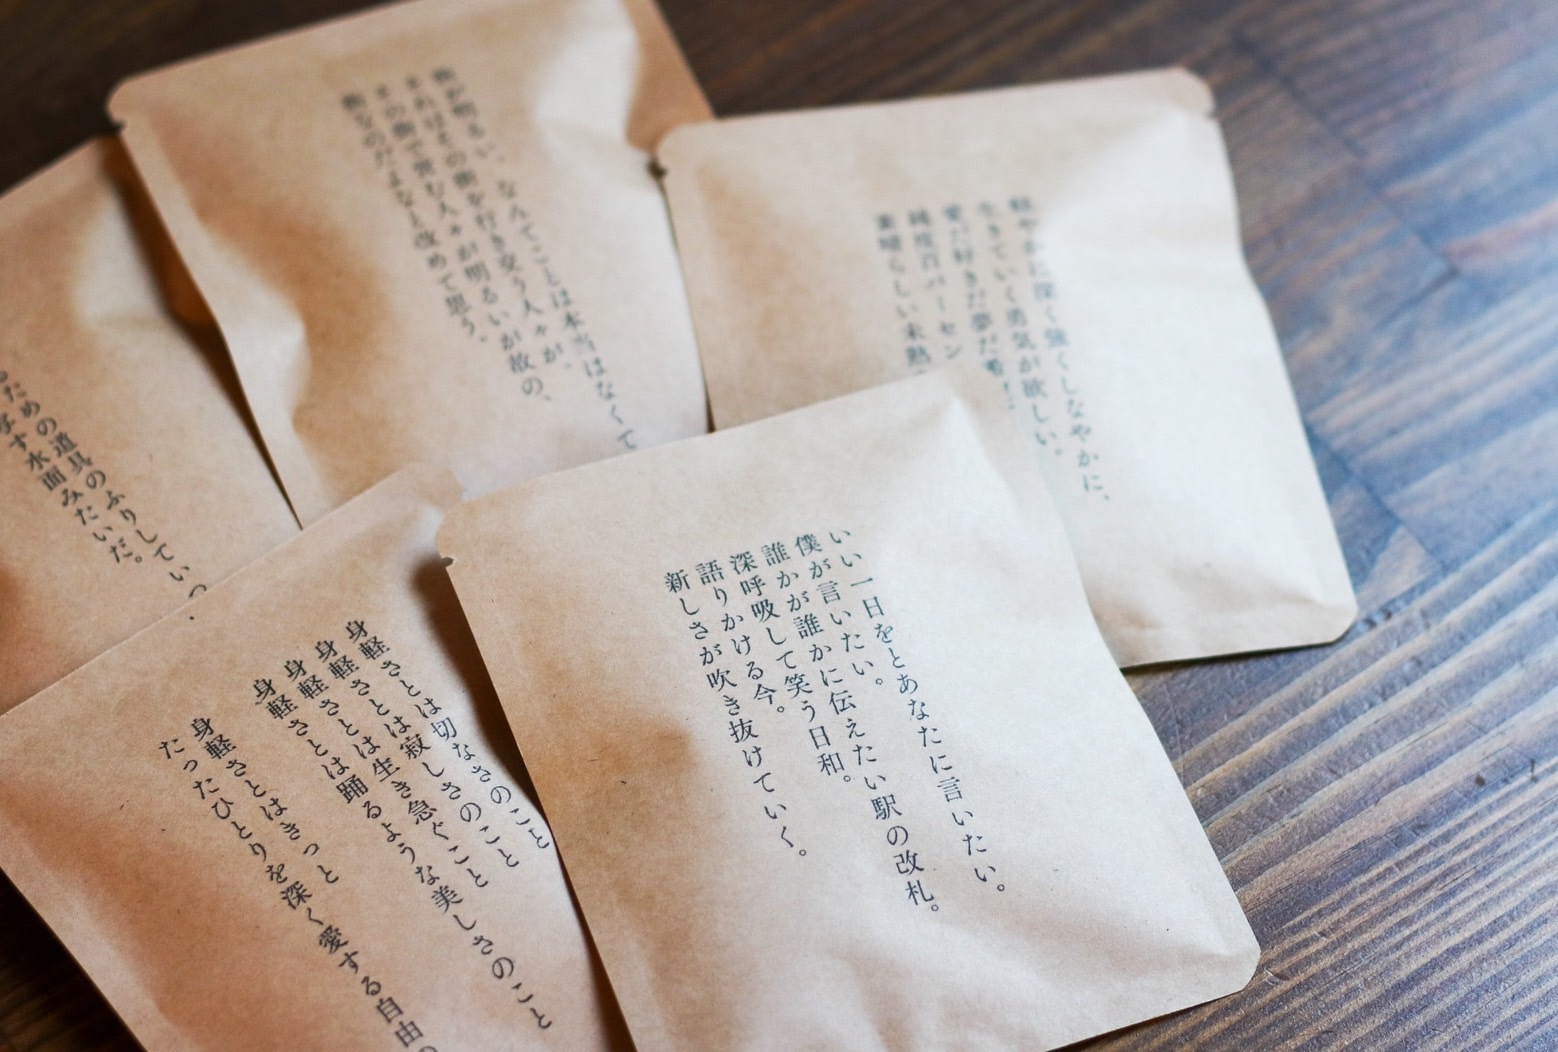 いい一日をとあなたに言いたい。
僕が言いたい。
誰かが誰かに伝えたい駅の改札。
深呼吸して笑う日和。
語りかける今。
新しさが吹き抜けていく。
身軽さとは切なさのこと
身軽さとは寂しさのこと
身軽さとは生き急ぐこと
身軽さとは踊るような美しさのこと
身軽さとはきっと
たったひとりを深く愛する自由の
軽やかに深く強くしなやかに、
生きていく勇気が欲しい。
愛だ好きだ夢だ
純度百パーセン
素晴らしい未熟
街が明るい、なんてことは本当はなくて
それはその街を行き交う人々が、
その街で営む人々が明るいが故の、
街なのだよなと改めて思う。
ための道具のふりしていっ
す水面みたいだ。